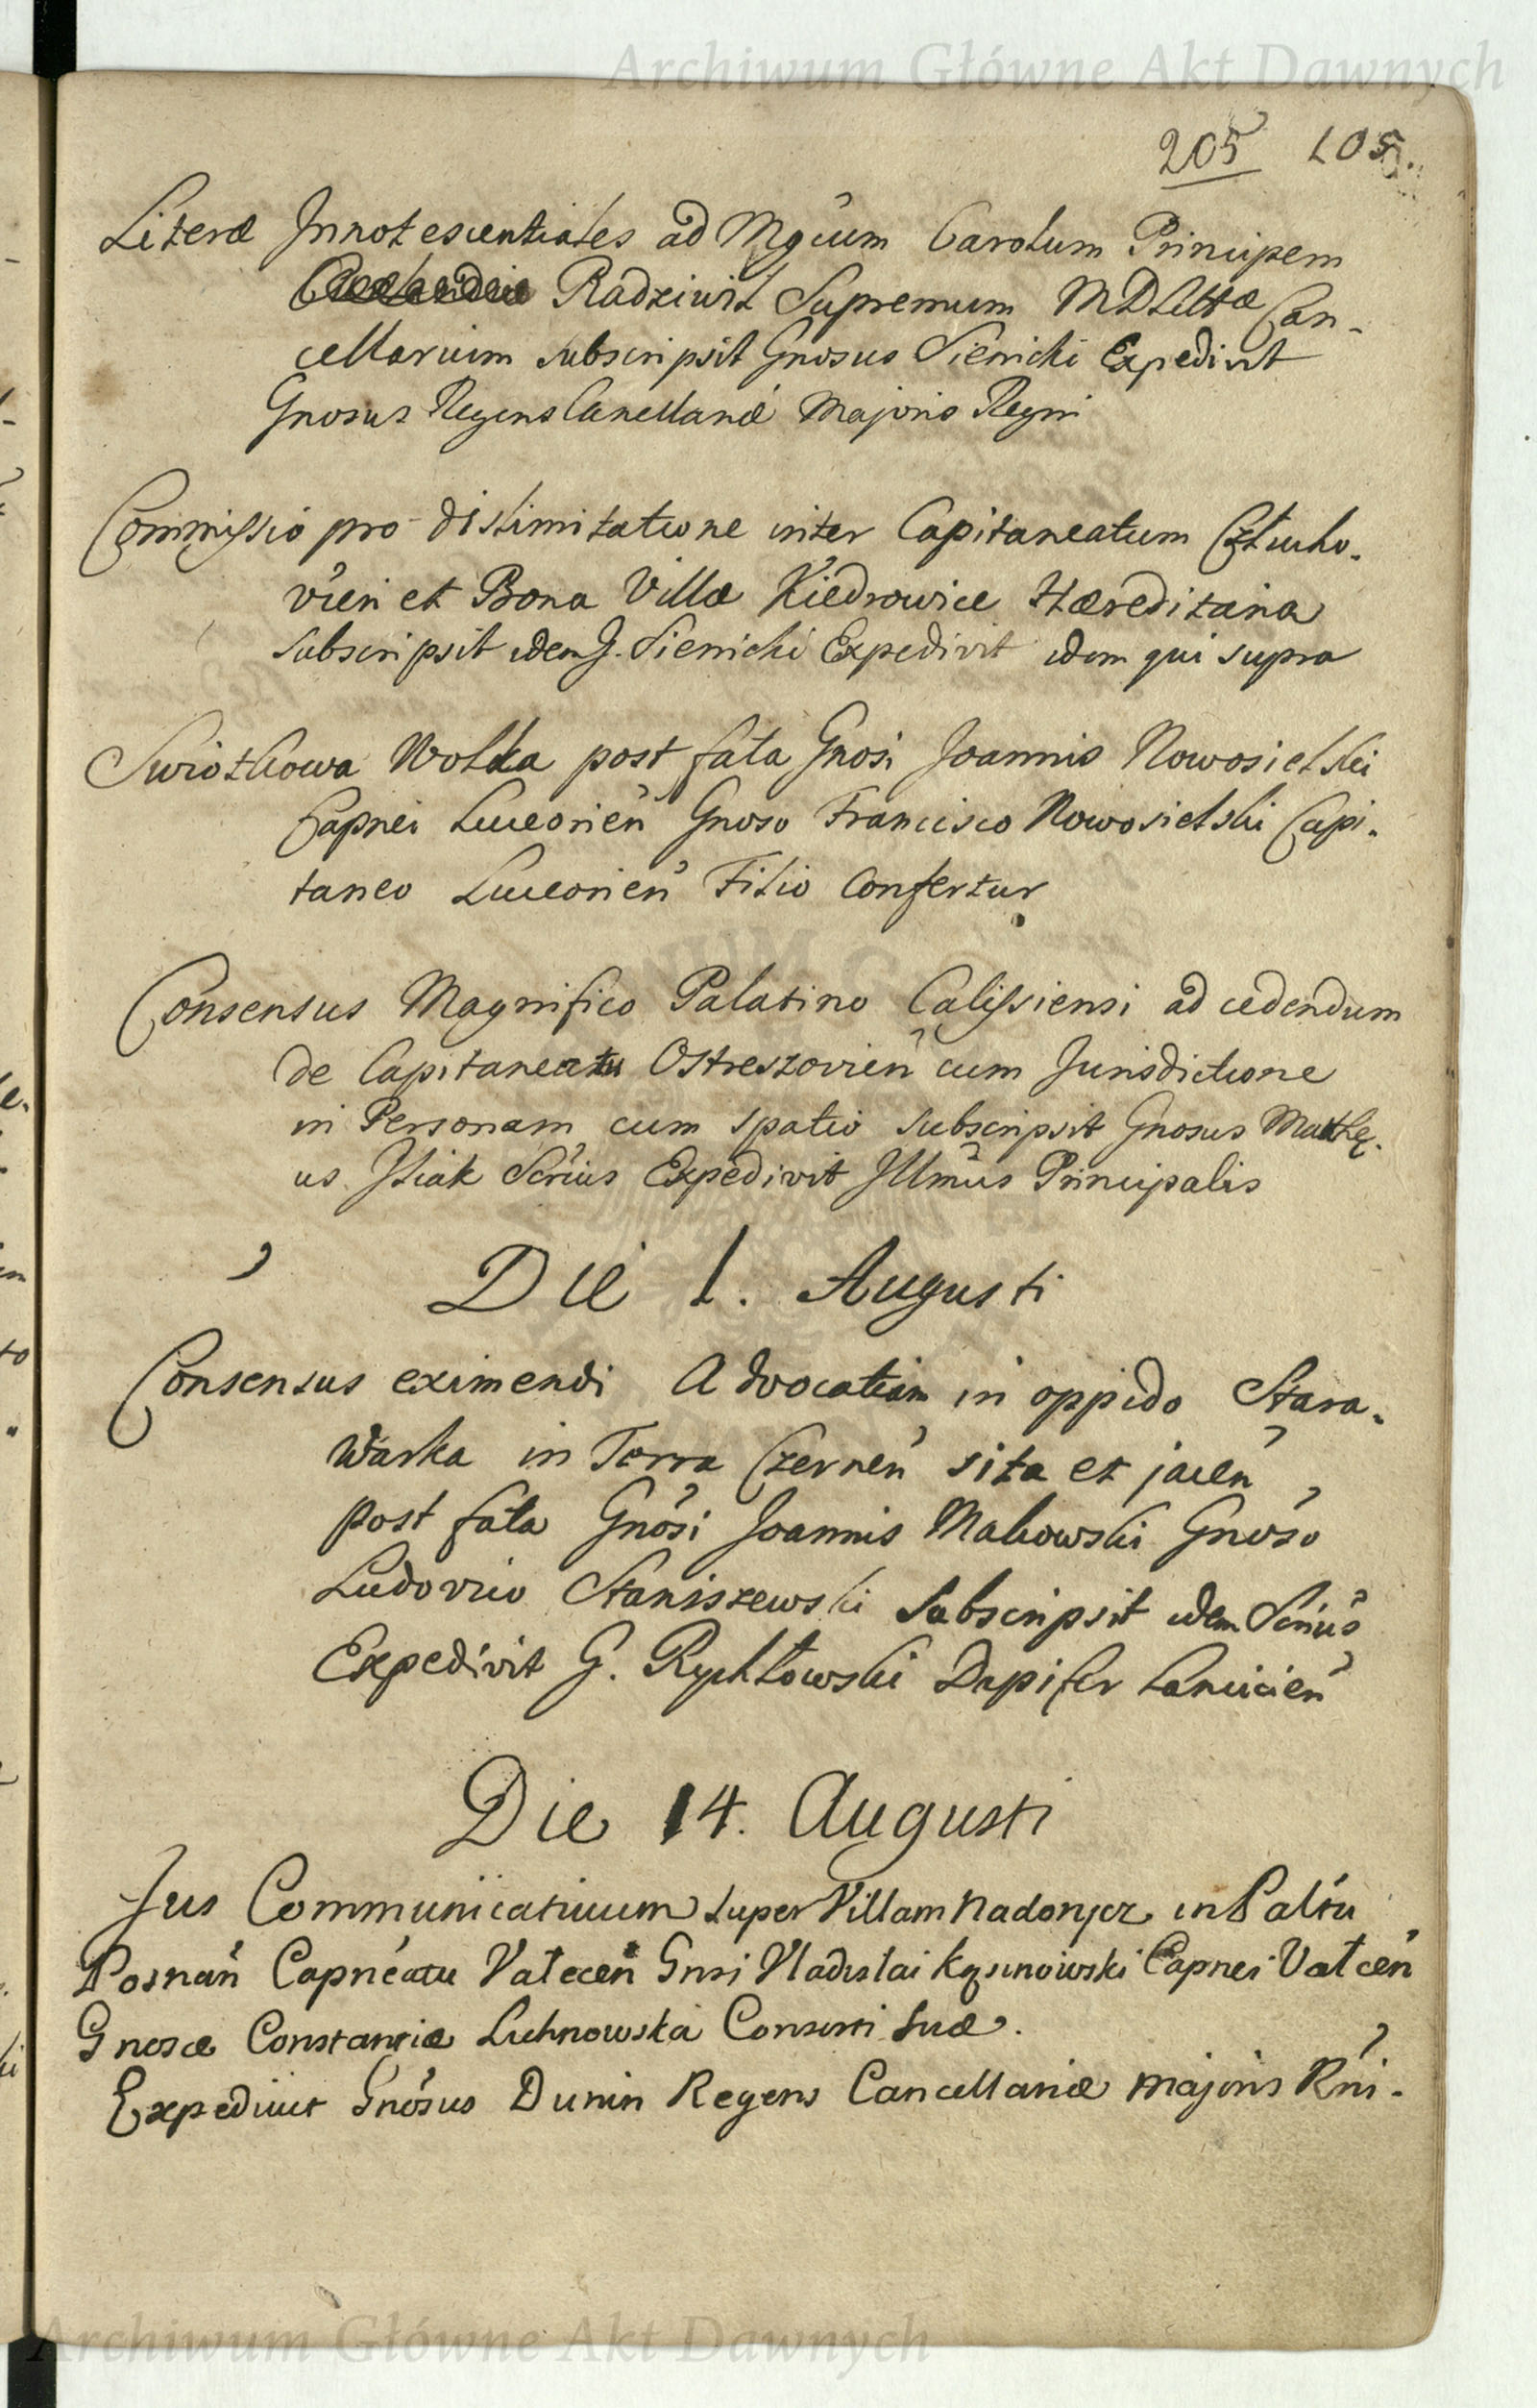 Archiwum Główne Akt Dawnych
205 105.
Literæ Innotescentiales ad Mgcum Carolum Principem
Radziwił Supremum MDLittæ Can-
cellarium subscripsit Gnosus Sienicki Expedivit
Gnosus Regens Cancellariæ Majoris Regni
Commissio pro dislimitatione inter Capitaneatum Człucho-
vień et Bona Villæ Kiedrowice Hæreditaria
subscripsit idem G. Sienicki Expedivit idem qui supra
Swiątkowa Wolka post fata Gnosi Joannis Nowosielski
Capnei Luceorień Gnoso Francisco Nowosielski Capi-
taneo Luceorień Filio Confertur
Consensus Magnifico Palatino Calissiensi ad cedendum
de Capitaneatu Ostreszovień cum Jurisdictione
in Personam cum spatio subscripsit Gnosus Matthæ-
us Isiak Scrius Expedivit Illmus Principalis
Die 1. Augusti
Consensus eximendi Advocatiam in oppido Stara-
Warka in Terra Czerneń sita et jaceń
post fata Gnosi Joannis Makowski Gnoso
Ludovico Staniszewski Subscripsit idem Scrius
Expedivit G. Rychłowski Dapifer Lancicień
Die 14. Augusti
Jus Communicativum super Villam Nadorycz in Paltu
Posnań Capneatu Valeceń Gnsi Vladislai Kąsinowski Capnei Valceń
Gnosæ Constantiæ Luhnowska Consorti suæ.
Expedivit Gnosus Dunin Regens Cancellariæ Majoris Rni.
Archiwum Główne Akt Dawnych